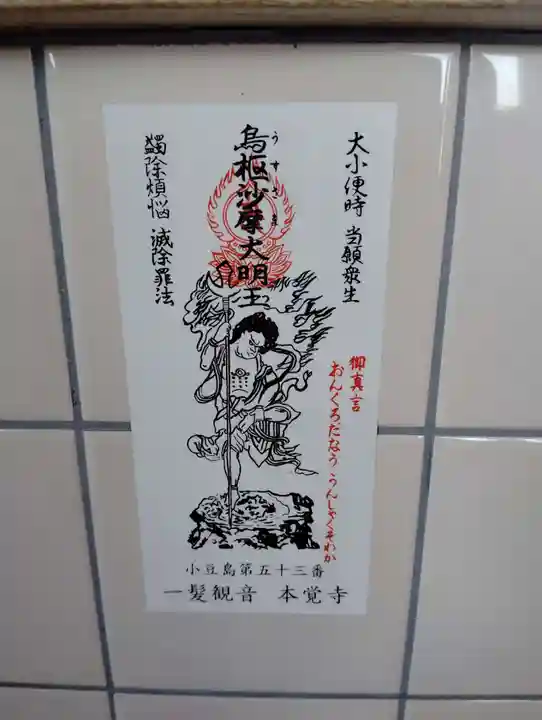 大小便時 当願衆生
烏枢沙摩大明王
うすさま
蠲除煩悩 滅除罪法
御真言
おんくろだなう うんじゃくそわか
小豆島第五十三番
一髪観音 本覚寺